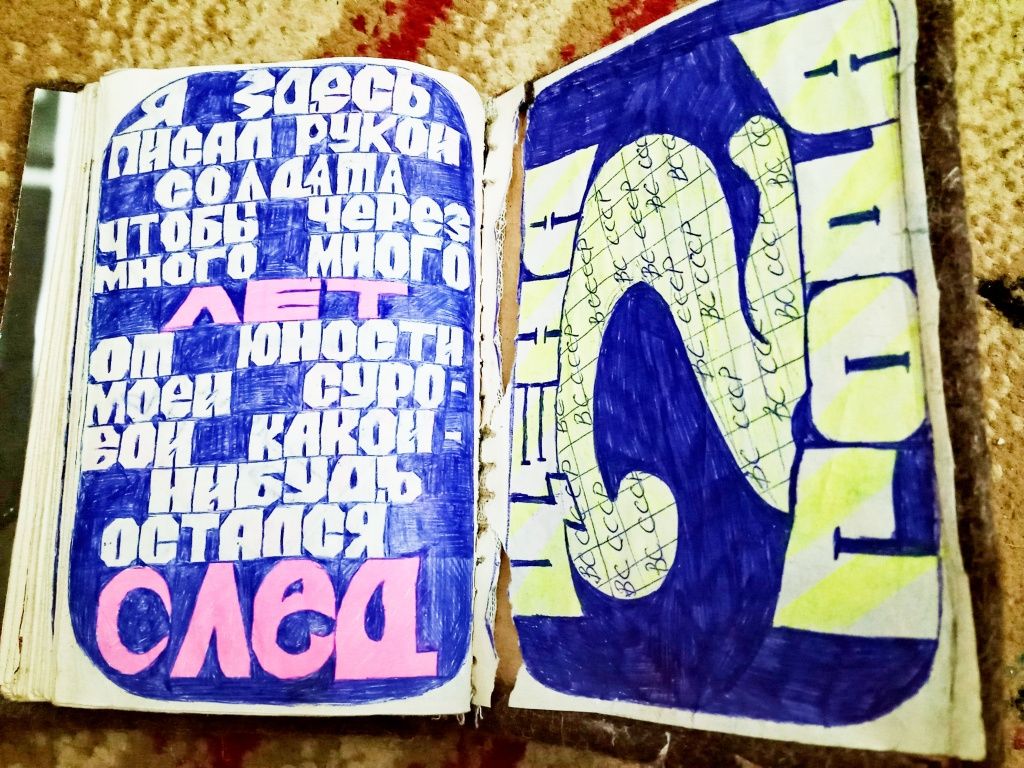 Я ЗДЕСЬ
ПИСАЛ РУКОЙ
СОЛДАТА
ЧТОБЫ ЧЕРЕЗ
МНОГО МНОГО
ЛЕТ
ОТ ЮНОСТИ
МОЕЙ СУРО-
ВОЙ КАКОЙ-
НИБУДЬ
ОСТАЛСЯ
СЛЕД
2
ВС СССР
ВС СССР
ВС СССР
ВС СССР
ВС СССР
ВС СССР
ГОДА